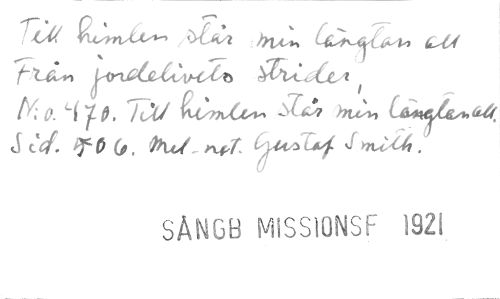 Till himlen står min längtan all
Från jordelivets strider,
N:o. 470. Till himlen står min längtan all.
Sid. 506. Mel-not. Gustaf Smith.
SÅNGB MISSIONSF 1921